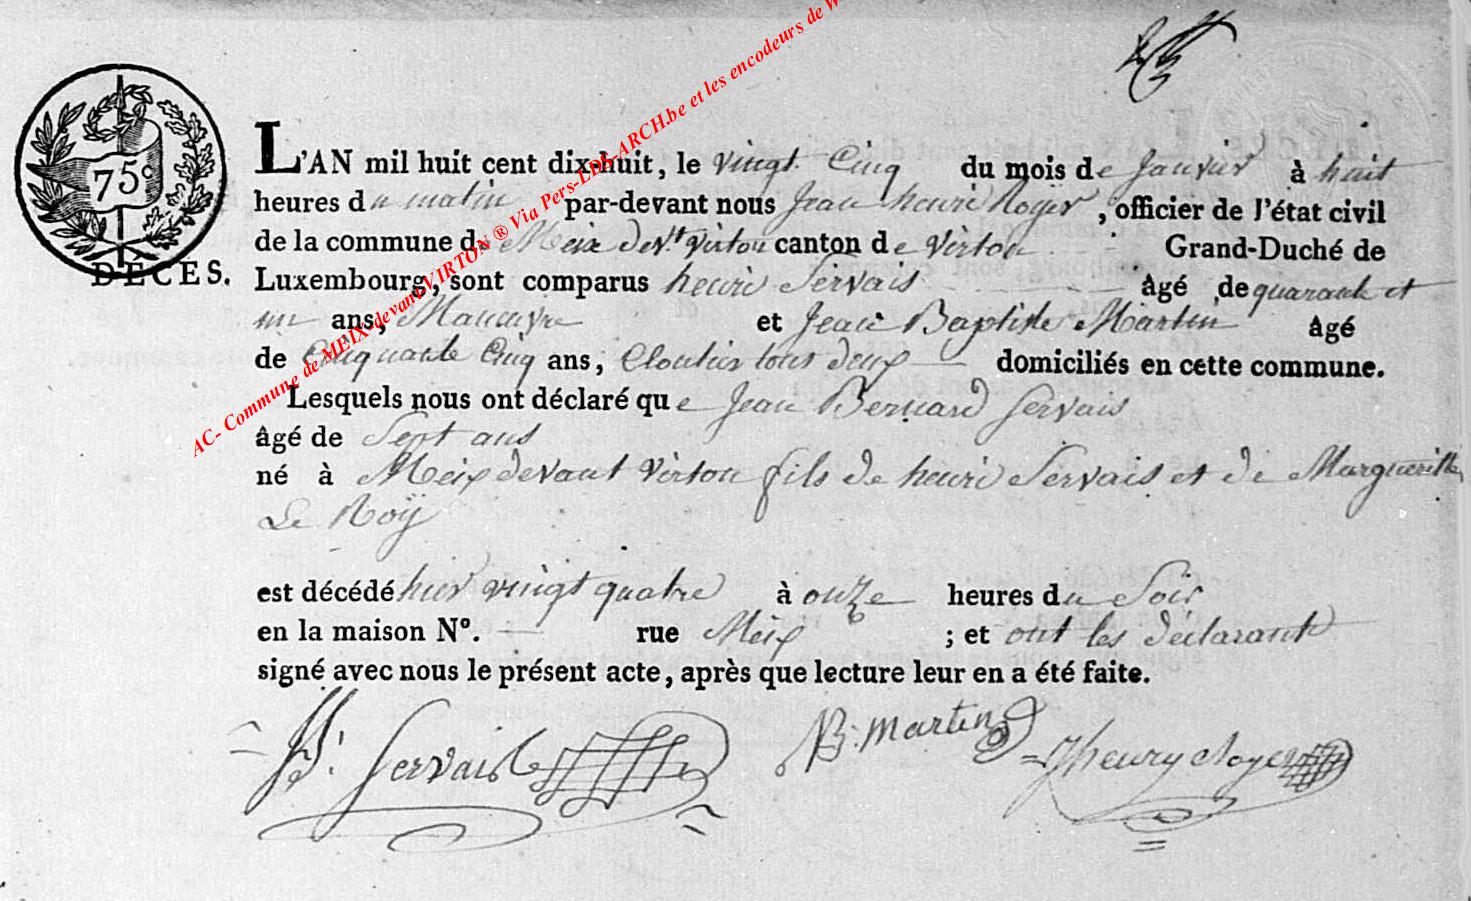 AC- Commune de MEIX-devant-VIRTON ® Via Pers-EDS-ARCH.be et les encodeurs de
75c
DÉCÈS.
L'AN mil huit cent dix-huit, le vingt Cinq du mois de Janvier à huit
heures du matin par-devant nous Jean henri Roger, officier de l'état civil
de la commune de Meix dev.t virton canton de virton Grand-Duché de
Luxembourg, sont comparus henri Servais âgé de quarante et
un ans, Manœuvre et Jean Baptiste Martin âgé
de Cinquante Cinq ans, Cloutier tous deux domiciliés en cette commune.
Lesquels nous ont déclaré que Jean Bernard Servais
âgé de Sept ans
né à Meix devant virton fils de henri Servais et de Margueritte
Le Roÿ
est décédé hier vingt quatre à onze heures du Soir
en la maison N°. — rue Meix ; et ont les déclarants
signé avec nous le présent acte, après que lecture leur en a été faite.
H. Servais JB. Martin JhenryRoger